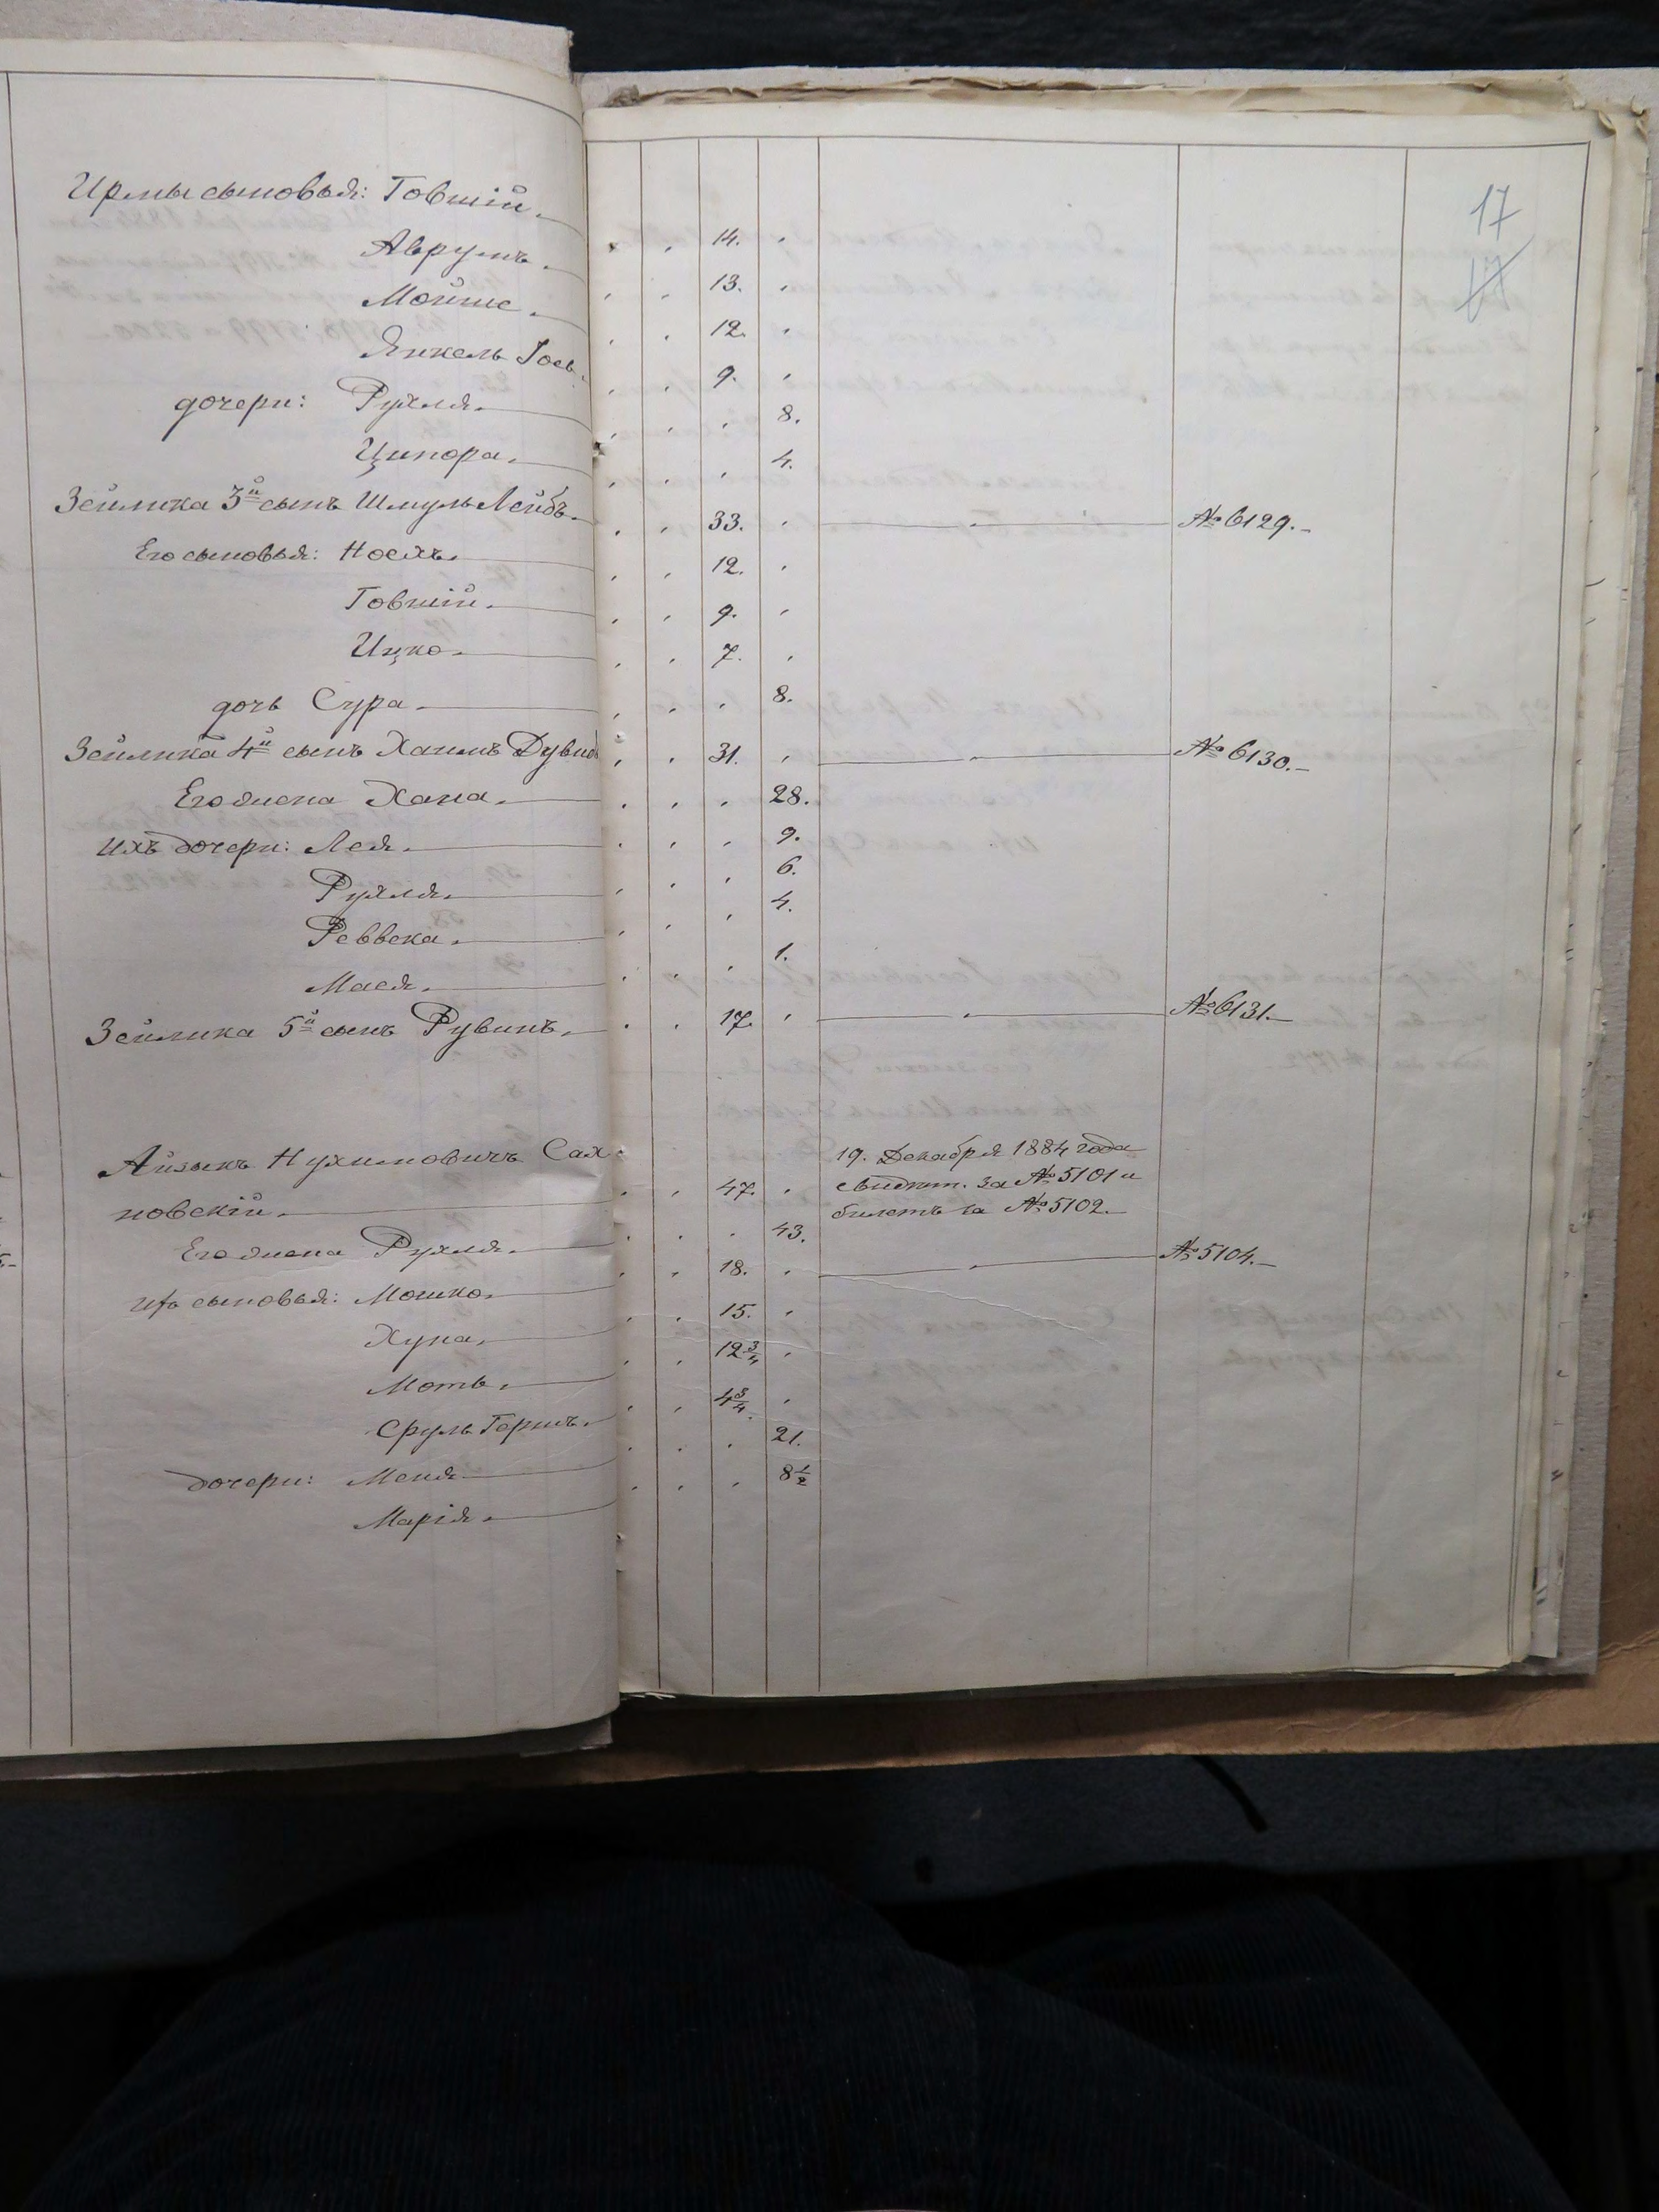 17
17
Ирмы сыновья: Говшій. 14.
Аврумъ. 13.
Мойше. 12.
Янкель Іос 9.
дочери: Рухля. 8.
Ципора. 4.
Зейлика 3й сынъ Шмуль Лейбъ. 33. № 6129.
Его сыновья: Носхъ. 12.
Говшій. 9.
Ицко. 7.
дочь Сура. 8.
Зейлика 4й сынъ Хаимъ Дувид 31. № 6130.
Его жена Хана. 28.
Ихъ дочери: Лея. 9.
Рухля. 6.
Реввека. 4.
Мася. 1.
Зейлика 5й сынъ Рувинъ. 17. № 6131.
Айзыкъ Нухимовичъ Сах
новскій. 47. 19. Декабря 1884 года
свидѣт. за № 5101 и
билетъ за № 5102.
Его жена Рухля. 43.
Ихъ сыновья: Мошко. 18. № 5104.
Хуна. 15.
Моть. 12 3/4
Сруль Гершъ. 4 3/4
дочери: Меня 21.
Марія. 8 1/2